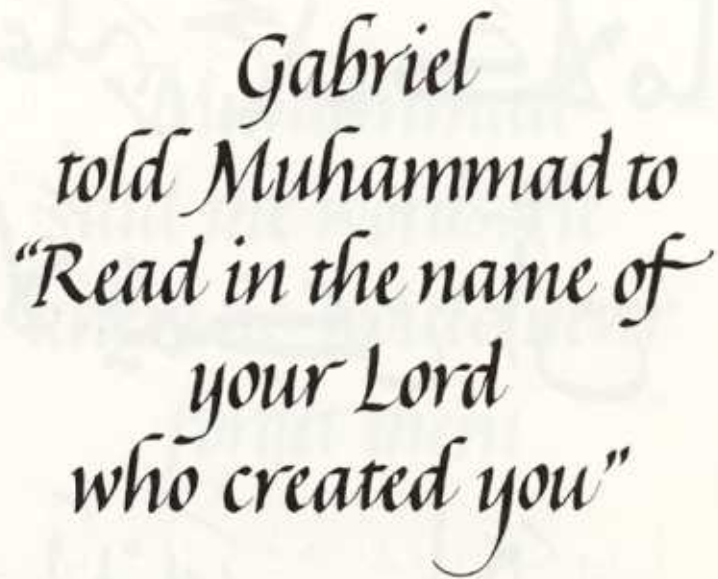 Gabriel
told Muhammad to
“Read in the name of
your Lord
who created you”